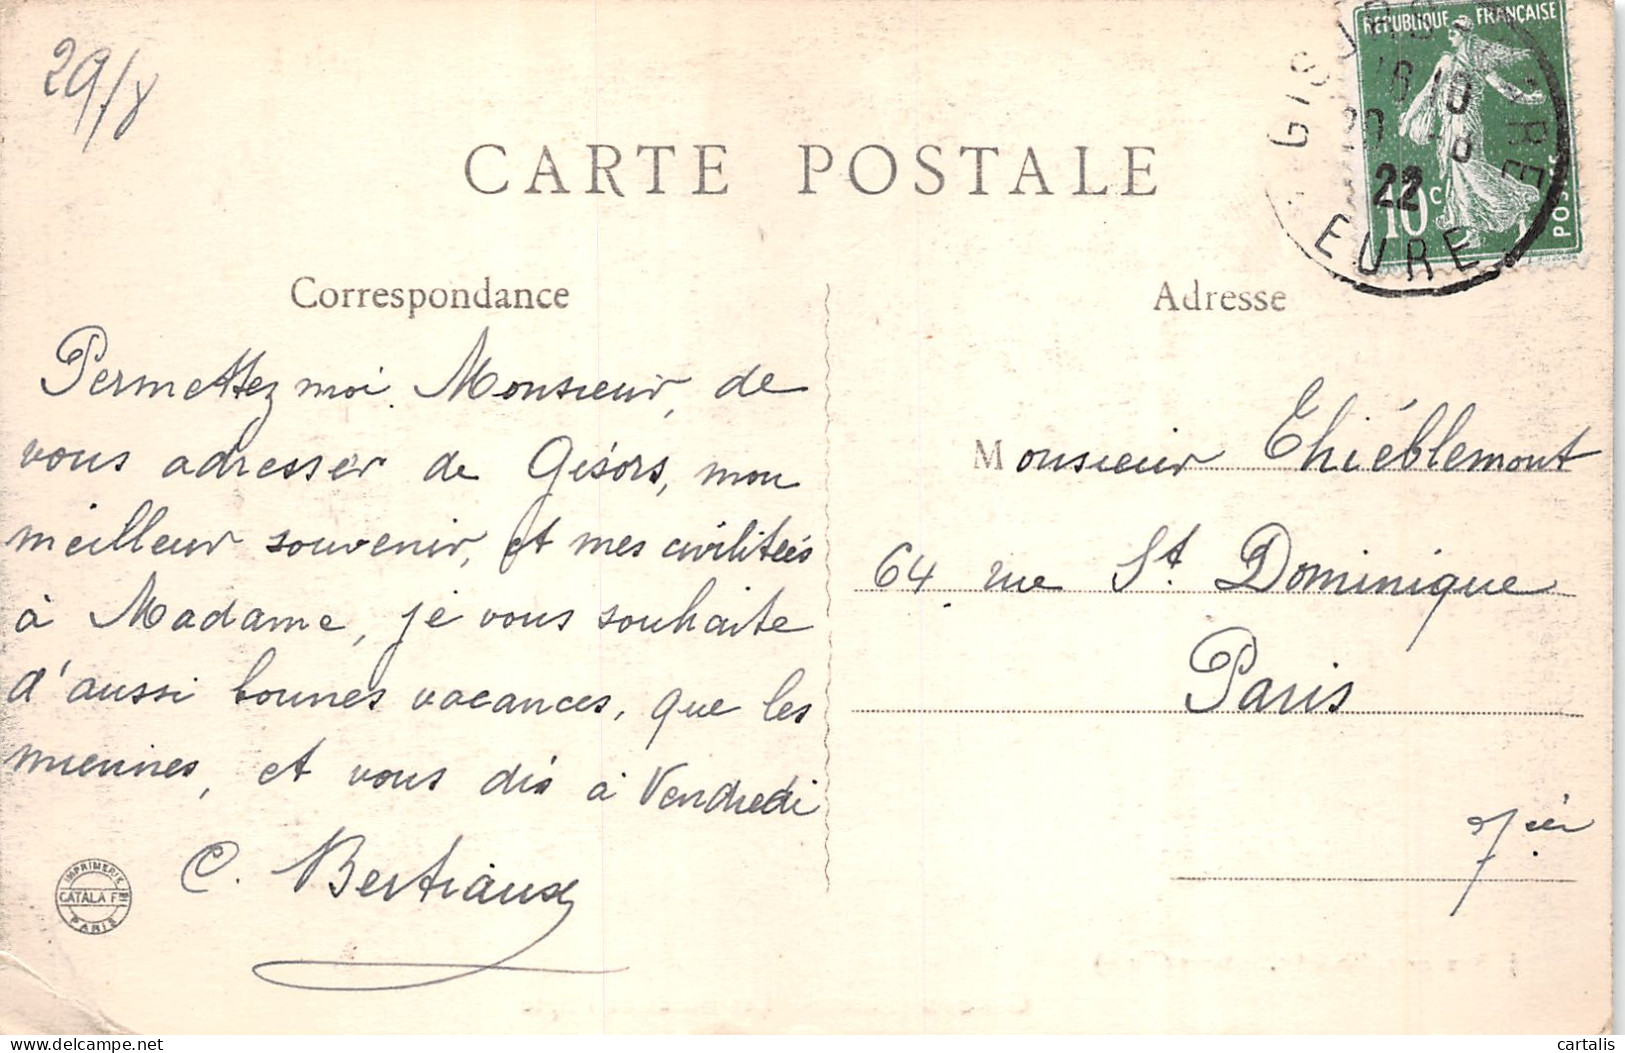 29/8
CARTE POSTALE
RÉPUBLIQUE FRANÇAISE
10c
POSTES
GISORS
22
EURE
Correspondance
Adresse
Permettez moi Monsieur, de
vous adresser de Gisors, mon
meilleur souvenir, et mes civilités
à Madame, je vous souhaite
d'aussi bonnes vacances, que les
miennes, et vous dis à Vendredi
C. Bertiaux
Monsieur Thiéblemont
64 rue St. Dominique
Paris
7ier
IMPRIMERIE
CATALA FRES
PARIS
delcampe.net
cartalis